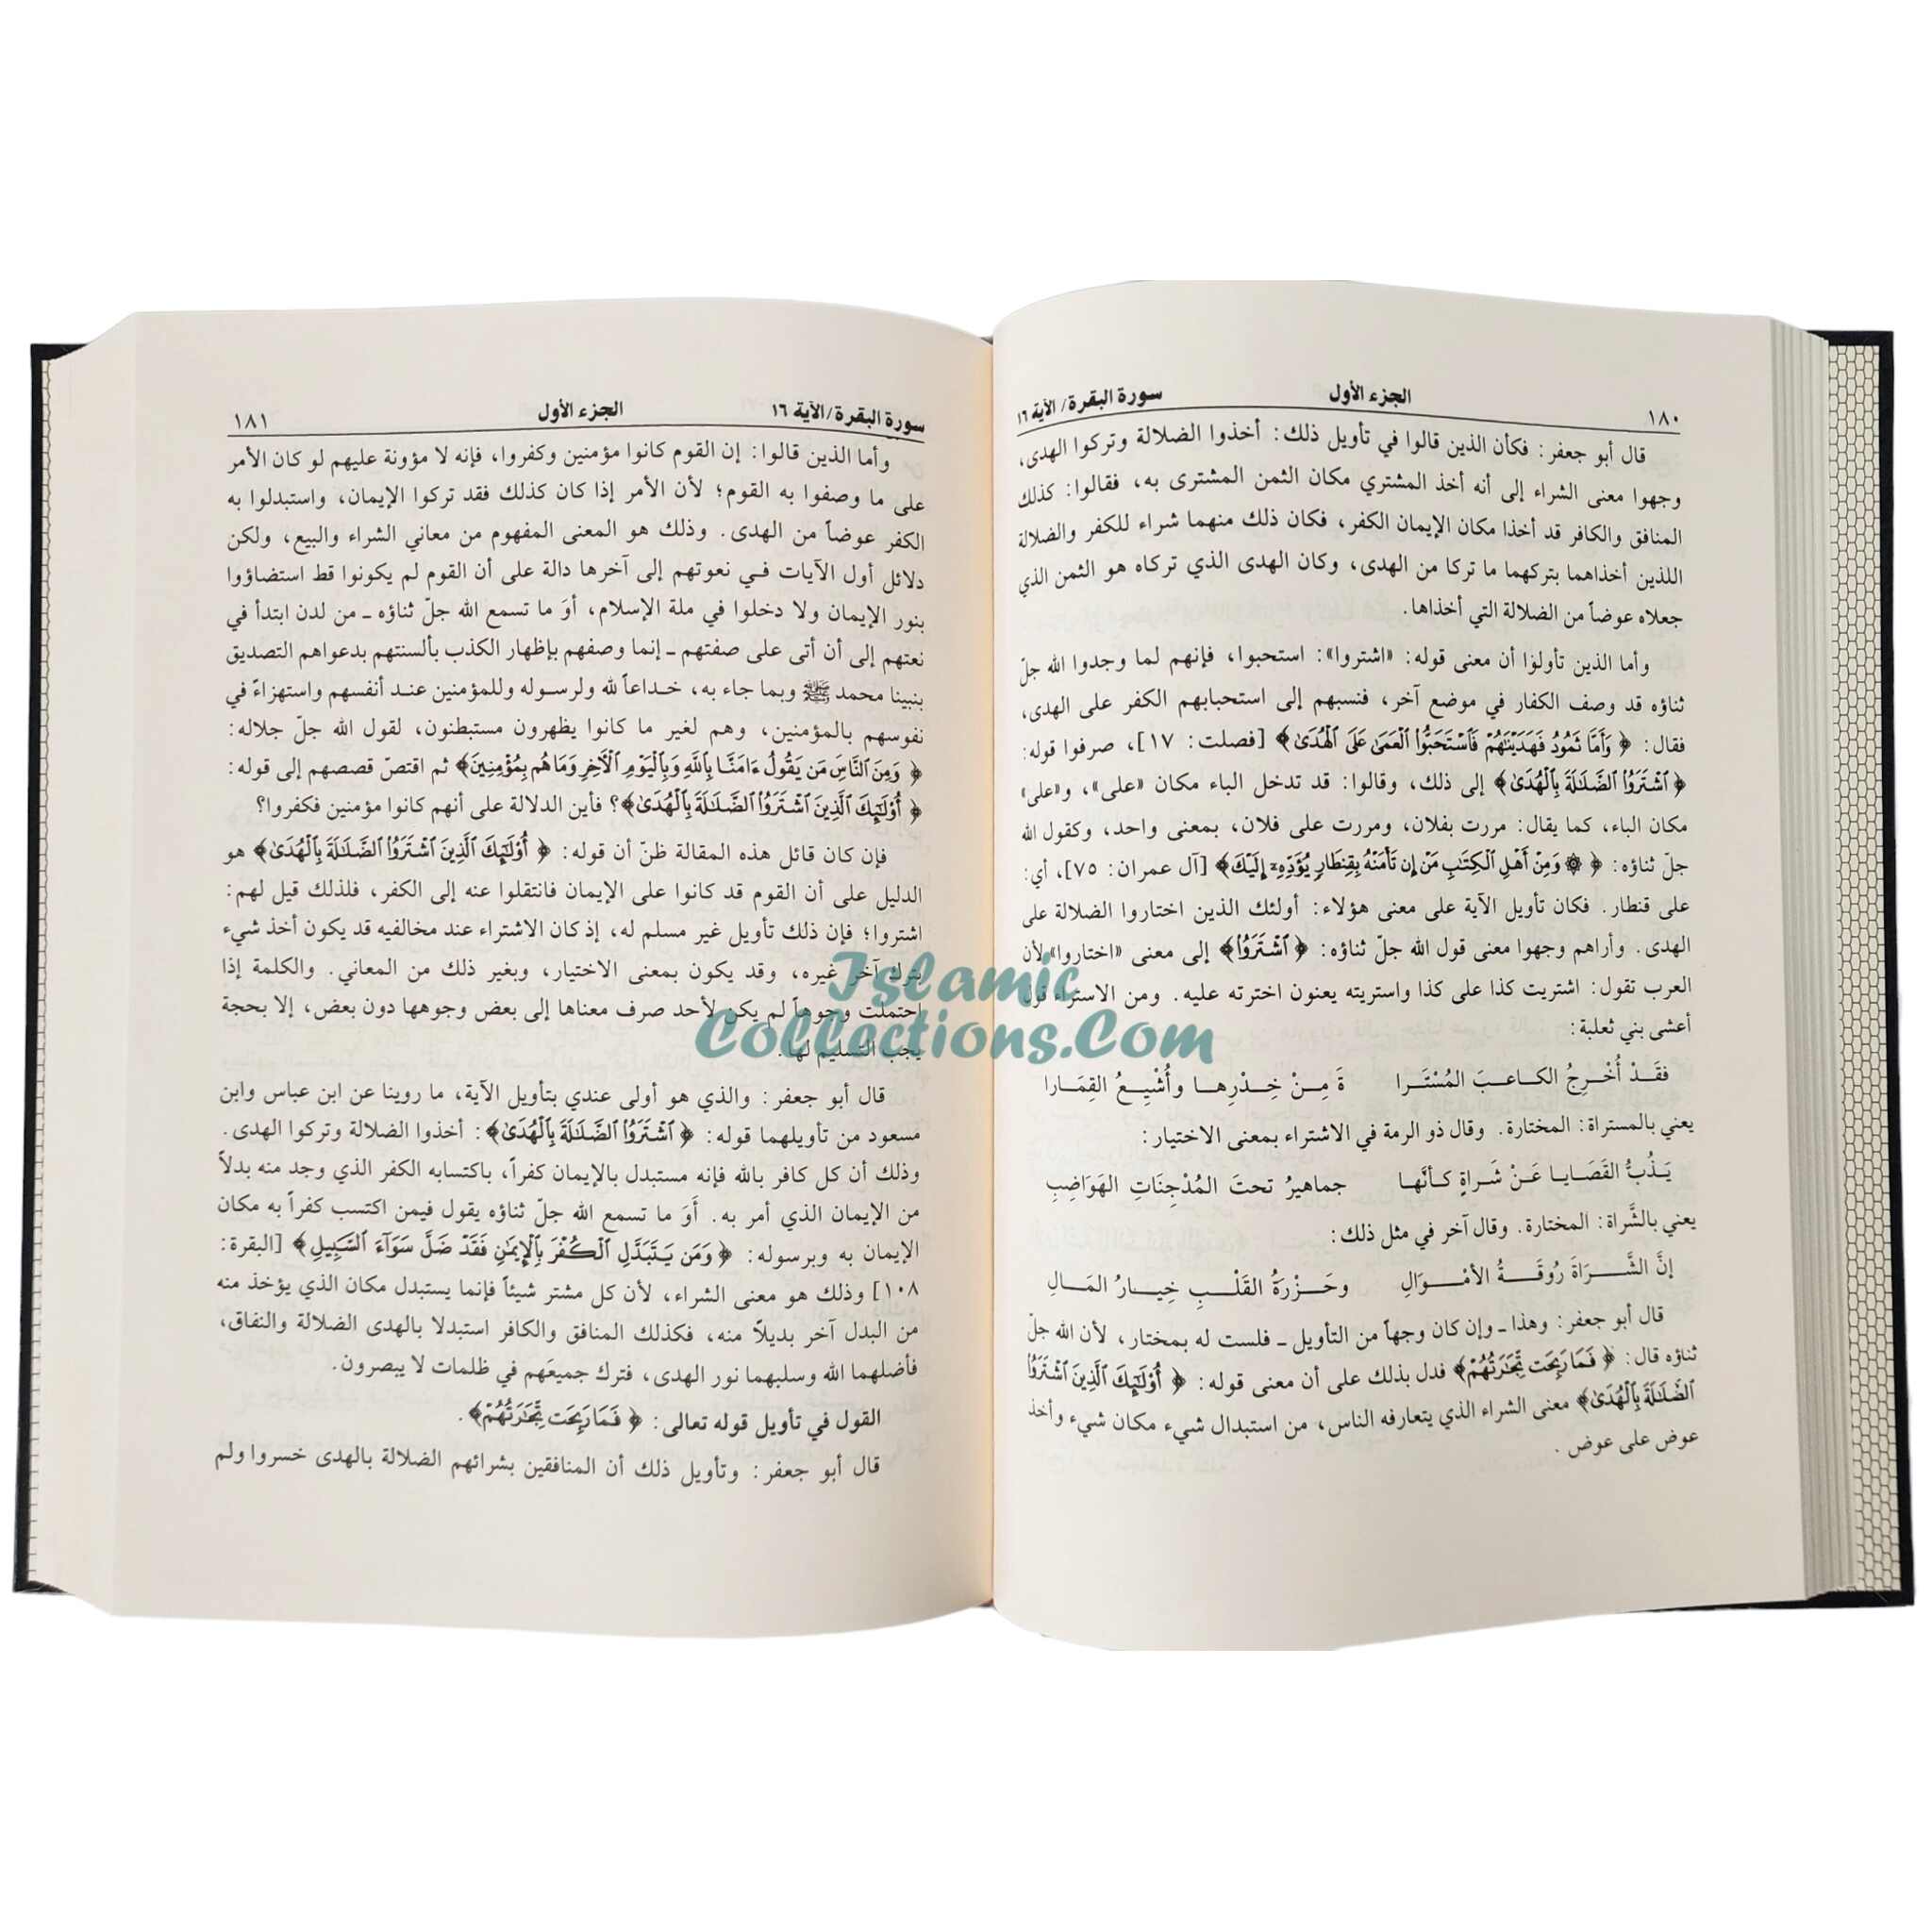 ١٨٠ الجزء الأول سورة البقرة/ الآية ١٦
قال أبو جعفر: فكأن الذين قالوا في تأويل ذلك: أخذوا الضلالة وتركوا الهدى،
وجهوا معنى الشراء إلى أنه أخذ المشتري مكان الثمن المشترى به، فقالوا: كذلك
المنافق والكافر قد أخذا مكان الإيمان الكفر، فكان ذلك منهما شراء للكفر والضلالة
اللذين أخذاهما بتركهما ما تركا من الهدى، وكان الهدى الذي تركاه هو الثمن الذي
جعلاه عوضاً من الضلالة التي أخذاها.
وأما الذين تأولوا أن معنى قوله: «اشتروا»: استحبوا، فإنهم لما وجدوا الله جلّ
ثناؤه قد وصف الكفار في موضع آخر، فنسبهم إلى استحبابهم الكفر على الهدى،
فقال: ﴿ وَأَمَّا ثَمُودُ فَهَدَيْنَٰهُمْ فَٱسْتَحَبُّوا۟ ٱلْعَمَىٰ عَلَى ٱلْهُدَىٰ﴾ [فصلت: ١٧]، صرفوا قوله:
﴿ ٱشْتَرَوُا۟ ٱلضَّلَٰلَةَ بِٱلْهُدَىٰ﴾ إلى ذلك، وقالوا: قد تدخل الباء مكان «على»، و«على»
مكان الباء، كما يقال: مررت بفلان، ومررت على فلان، بمعنى واحد، وكقول الله
جلّ ثناؤه: ﴿ ۞ وَمِنْ أَهْلِ ٱلْكِتَٰبِ مَنْ إِن تَأْمَنْهُ بِقِنطَارٍ يُؤَدِّهِۦٓ إِلَيْكَ﴾ [آل عمران: ٧٥]، أي:
على قنطار. فكان تأويل الآية على معنى هؤلاء: أولئك الذين اختاروا الضلالة على
الهدى. وأراهم وجهوا معنى قول الله جلّ ثناؤه: ﴿ ٱشْتَرَوُا۟﴾ إلى معنى «اختاروا» لأن
العرب تقول: اشتريت كذا على كذا واستريته يعنون اخترته عليه. ومن الاستراء قول
أعشى بني ثعلبة:
فقَدْ أُخْرِجُ الكاعبَ المُسْتَرا ةَ مِنْ خِدْرِها وأُشْيِعُ القِمَارا
يعني بالمستراة: المختارة. وقال ذو الرمة في الاشتراء بمعنى الاختيار:
يَذُبُّ القَصَايا عَنْ شَراةٍ كأنَّها جماهيرُ تحتَ المُدْجِنَاتِ الهَوَاضِبِ
يعني بالشَّراة: المختارة. وقال آخر في مثل ذلك:
إنَّ الشَّرَاةَ رُوقَةُ الأمْوَالِ وحَزْرَةُ القَلْبِ خِيارُ المَالِ
قال أبو جعفر: وهذا ـ وإن كان وجهاً من التأويل ـ فلست له بمختار، لأن الله جلّ
ثناؤه قال: ﴿ فَمَا رَبِحَت تِّجَٰرَتُهُمْ﴾ فدل بذلك على أن معنى قوله: ﴿ أُو۟لَٰٓئِكَ ٱلَّذِينَ ٱشْتَرَوُا۟
ٱلضَّلَٰلَةَ بِٱلْهُدَىٰ﴾ معنى الشراء الذي يتعارفه الناس، من استبدال شيء مكان شيء وأخذ
عوض على عوض.
سورة البقرة/الآية ١٦ الجزء الأول ١٨١
وأما الذين قالوا: إن القوم كانوا مؤمنين وكفروا، فإنه لا مؤونة عليهم لو كان الأمر
على ما وصفوا به القوم؛ لأن الأمر إذا كان كذلك فقد تركوا الإيمان، واستبدلوا به
الكفر عوضاً من الهدى. وذلك هو المعنى المفهوم من معاني الشراء والبيع، ولكن
دلائل أول الآيات في نعوتهم إلى آخرها دالة على أن القوم لم يكونوا قط استضاؤوا
بنور الإيمان ولا دخلوا في ملة الإسلام، أوَ ما تسمع الله جلّ ثناؤه ـ من لدن ابتدأ في
نعتهم إلى أن أتى على صفتهم ـ إنما وصفهم بإظهار الكذب بألسنتهم بدعواهم التصديق
بنبينا محمد ﷺ وبما جاء به، خداعاً لله ولرسوله وللمؤمنين عند أنفسهم واستهزاءً في
نفوسهم بالمؤمنين، وهم لغير ما كانوا يظهرون مستبطنون، لقول الله جلّ جلاله:
﴿ وَمِنَ ٱلنَّاسِ مَن يَقُولُ ءَامَنَّا بِٱللَّهِ وَبِٱلْيَوْمِ ٱلْءَاخِرِ وَمَا هُم بِمُؤْمِنِينَ﴾ ثم اقتصّ قصصهم إلى قوله:
﴿ أُو۟لَٰٓئِكَ ٱلَّذِينَ ٱشْتَرَوُا۟ ٱلضَّلَٰلَةَ بِٱلْهُدَىٰ﴾؟ فأين الدلالة على أنهم كانوا مؤمنين فكفروا؟
فإن كان قائل هذه المقالة ظنّ أن قوله: ﴿ أُو۟لَٰٓئِكَ ٱلَّذِينَ ٱشْتَرَوُا۟ ٱلضَّلَٰلَةَ بِٱلْهُدَىٰ﴾ هو
الدليل على أن القوم قد كانوا على الإيمان فانتقلوا عنه إلى الكفر، فلذلك قيل لهم:
اشتروا؛ فإن ذلك تأويل غير مسلم له، إذ كان الاشتراء عند مخالفيه قد يكون أخذ شيء
بترك آخر غيره، وقد يكون بمعنى الاختيار، وبغير ذلك من المعاني. والكلمة إذا
احتملت وجوهاً لم يكن لأحد صرف معناها إلى بعض وجوهها دون بعض، إلا بحجة
يجب التسليم لها.
قال أبو جعفر: والذي هو أولى عندي بتأويل الآية، ما روينا عن ابن عباس وابن
مسعود من تأويلهما قوله: ﴿ ٱشْتَرَوُا۟ ٱلضَّلَٰلَةَ بِٱلْهُدَىٰ﴾: أخذوا الضلالة وتركوا الهدى.
وذلك أن كل كافر بالله فإنه مستبدل بالإيمان كفراً، باكتسابه الكفر الذي وجد منه بدلاً
من الإيمان الذي أمر به. أَوَ ما تسمع الله جلّ ثناؤه يقول فيمن اكتسب كفراً به مكان
الإيمان به وبرسوله: ﴿ وَمَن يَتَبَدَّلِ ٱلْكُفْرَ بِٱلْإِيمَٰنِ فَقَدْ ضَلَّ سَوَآءَ ٱلسَّبِيلِ﴾ [البقرة:
١٠٨] وذلك هو معنى الشراء، لأن كل مشتر شيئاً فإنما يستبدل مكان الذي يؤخذ منه
من البدل آخر بديلاً منه، فكذلك المنافق والكافر استبدلا بالهدى الضلالة والنفاق،
فأضلهما الله وسلبهما نور الهدى، فترك جميعَهم في ظلمات لا يبصرون.
القول في تأويل قوله تعالى: ﴿ فَمَا رَبِحَت تِّجَٰرَتُهُمْ﴾.
قال أبو جعفر: وتأويل ذلك أن المنافقين بشرائهم الضلالة بالهدى خسروا ولم
Islamic
Collections.Com